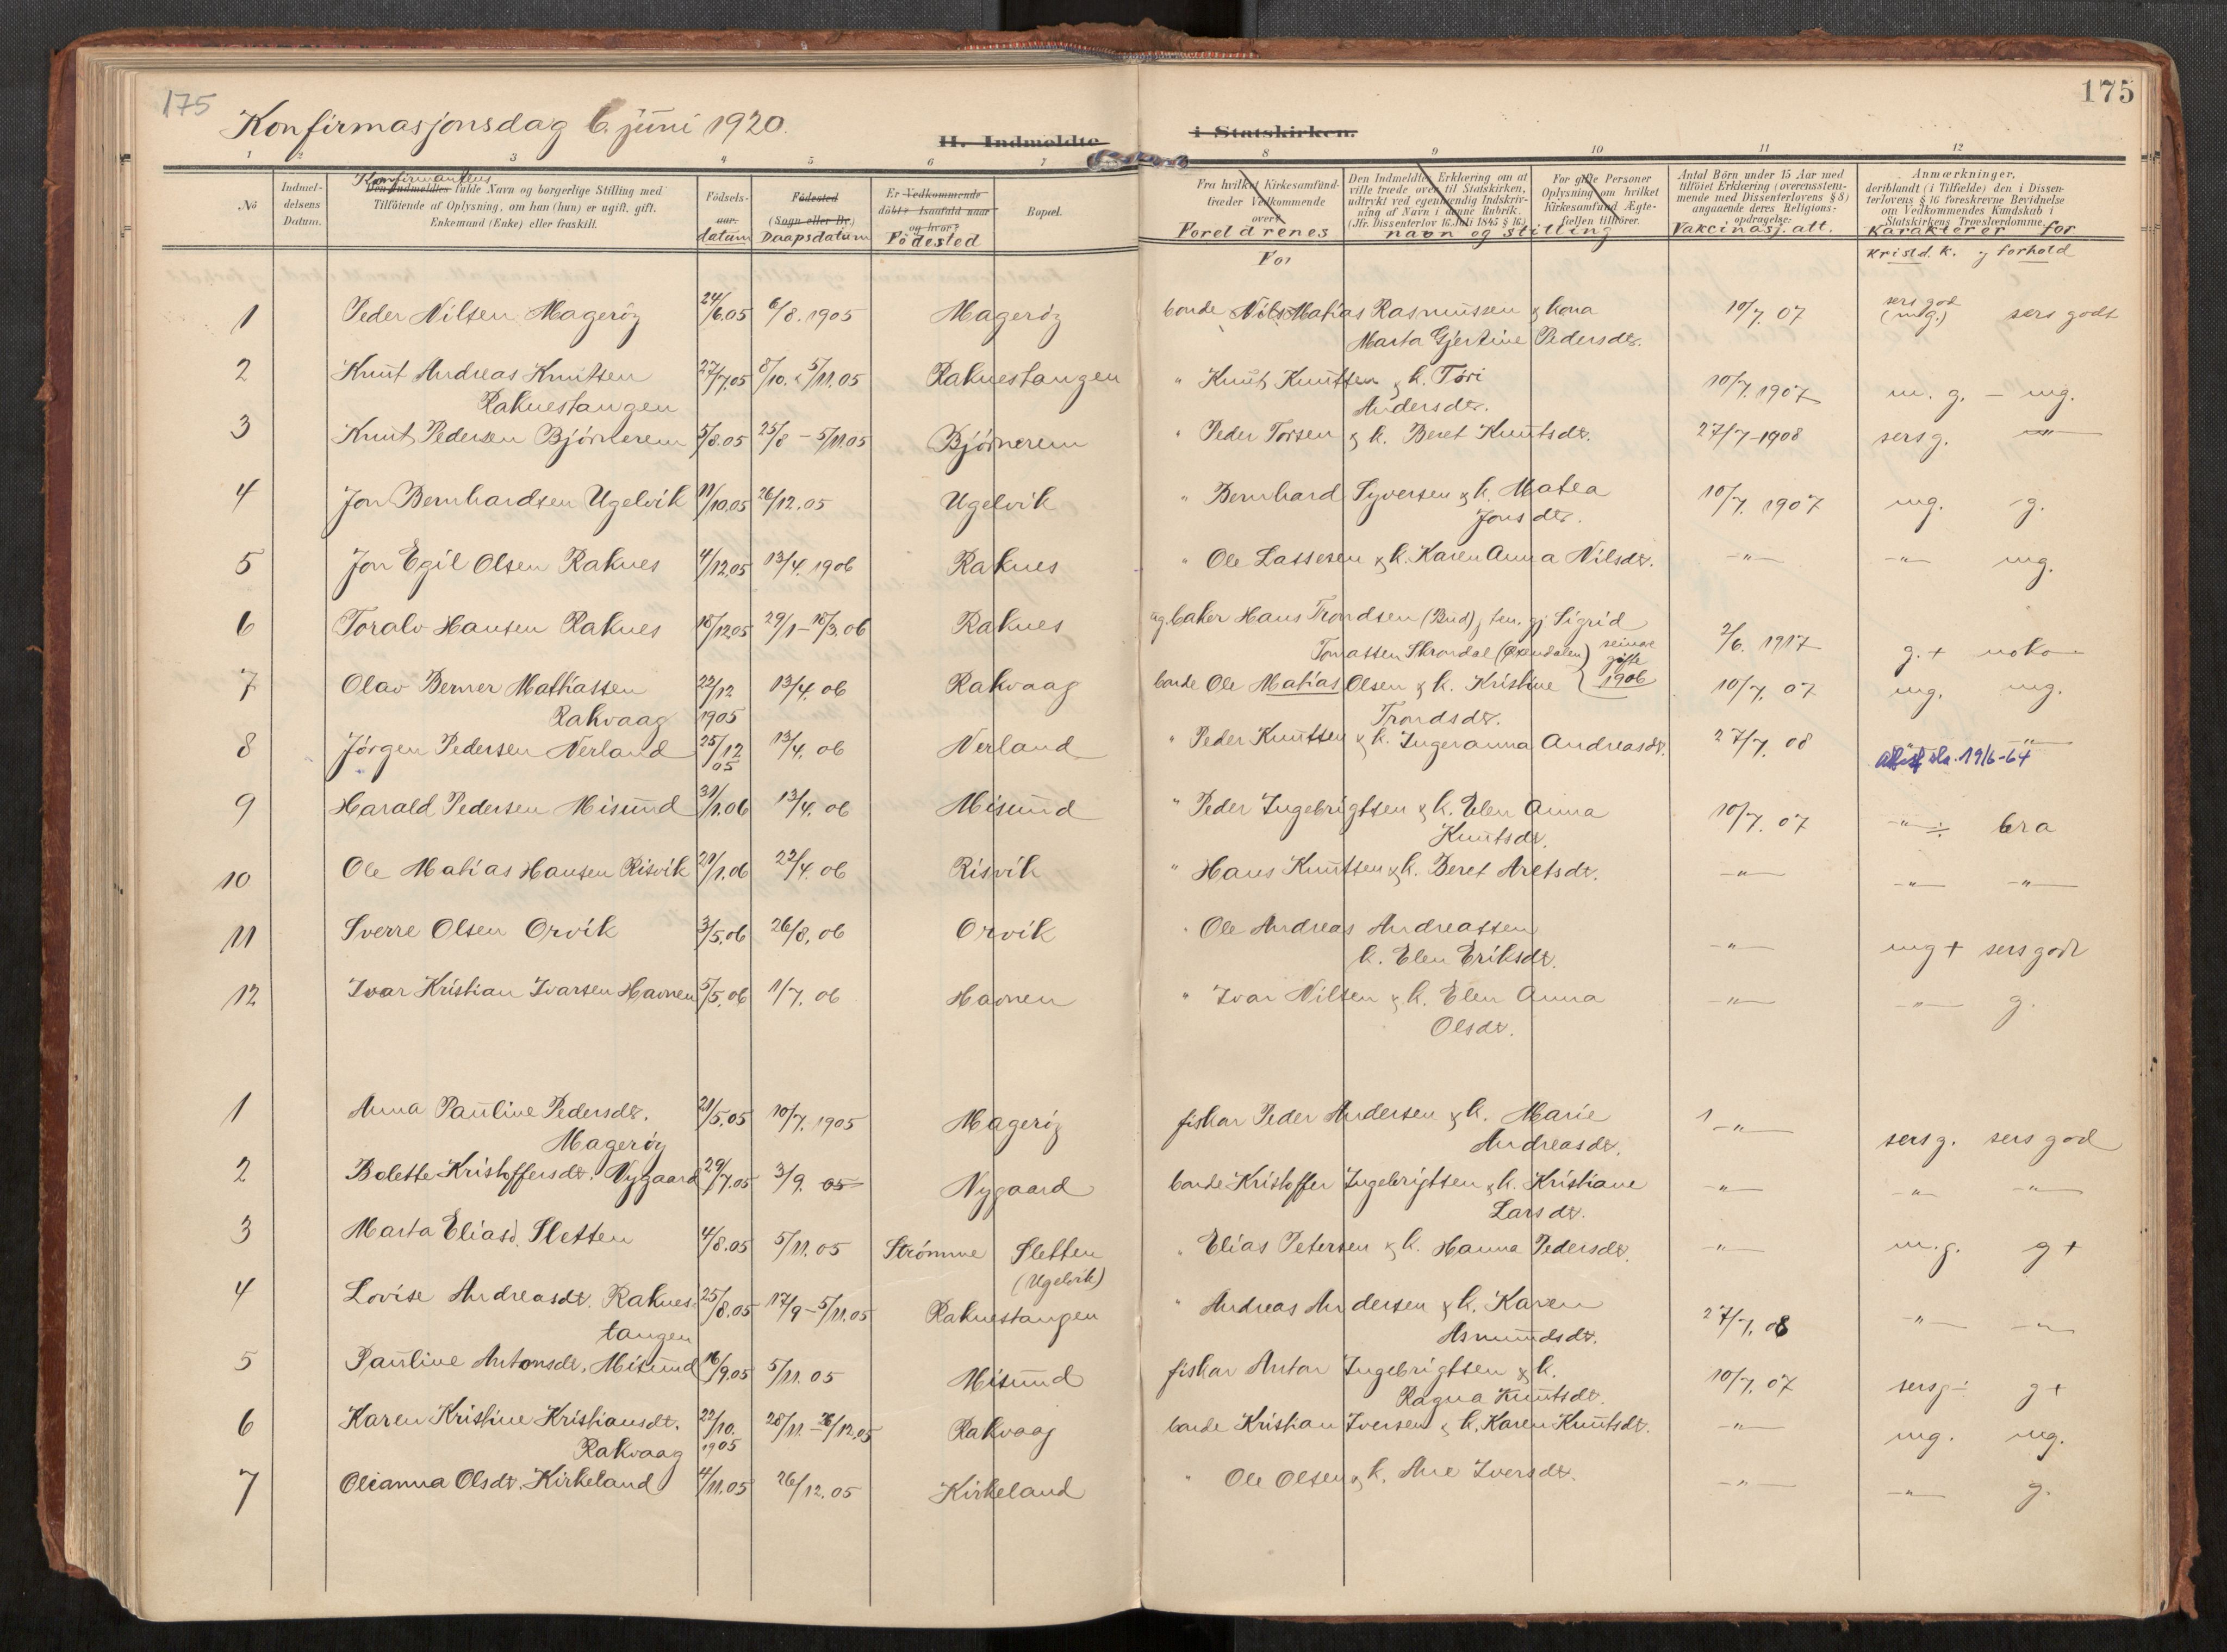 175
175
Konfirmasjonsdag 6. juni 1920.
II. Indmeldte i Statskirken.
1 2 3 4 5 6 7 8 9 10 11 12
Nö
Indmel-
delsens
Datum.
Konfirmantens
Den Indmeldtes fulde Navn og borgerlige Stilling med
Tilföiende af Oplysning, om han (hun) er ugift, gift,
Enkemand (Enke) eller fraskilt.
Födsels-
aar.
datum
Födested
(Sogn eller By.)
Daapsdatum
Er Vedkommende
döbt? Isaafald naar
og hvor?
Födested
Bopæl.
Fra hvilket Kirkesamfund-
fræder Vedkommende
over?
Foreldrenes
Den Indmeldtes Erklæring om at
ville træde over til Statskirken,
udtrykt ved egenhændig Indskriv-
ning af Navn i denne Rubrik.
(Jfr. Dissenterlov 16 Juli 1845 § 16.)
navn og stilling
For gifte Personer
Oplysning om hvilket
Kirkesamfund Ægte-
fællen tilhörer.
Antal Börn under 15 Aar med
tilföiet Erklæring (overensstem-
mende med Dissenterlovens § 8)
angaaende deres Religions-
opdragelse:
Vakcinasj. att.
Anmærkninger,
deriblandt (i Tilfælde) den i Dissen-
terlovens § 16 foreskrevne Bevidnelse
om Vedkommendes Kundskab i
Statskirkens Troeslærdomme.
Karakterer for
kristd. k. og forhold
For
1 Peder Nilsen Mageröy 24/6.05 6/8. 1905 Mageröy bonde Nils Matias Rasmussen & kona 10/7. 07 sers god (mg.) sers godt
Marta Gjertine Pedersdr.
2 Knut Andreas Knutsen 27/7.05 8/10. & 5/11.05 Raknestangen " Knut Knutsen & k. Töri 10/7. 1907 m. g. – mg.
Raknestangen Andersdr.
3 Knut Pedersen Björnerem 5/8.05 25/8 – 5/11.05 Björnerem " Peder Torsen & k. Beret Knutsdr. 27/7-1908 sers g. –"–
4 Jon Bernhardsen Ugelvik 11/10.05 26/12.05 Ugelvik " Bernhard Syversen & k. Matea 10/7. 1907 mg. g.
Jonsdr.
5 Jon Egil Olsen Raknes 4/12.05 13/4. 1906 Raknes " Ole Lassesen & k. Karen Anna Nilsdr. –"– –"– mg.
6 Toralv Hansen Raknes 18/12.05 29/1 – 18/3.06 Raknes ug. baker Hans Trondsen (Bud), ten. gj. Sigrid 2/6. 1917 g. + noko
Tomassen Skrondal (Öxendalen) seinare gifte 1906
7 Olav Berner Mathiassen 22/12 13/4. 06 Rakvaag bonde Ole Matias Olsen & k. Kristine 10/7. 07 mg. mg.
Rakvaag 1905 Trondsdr.
8 Jörgen Pedersen Nerland 25/12 05 13/4. 06 Nerland " Peder Knutsen & k. Ingeranna Andreasdr. 27/7. 08 –"– –"–
Attest sla. 19/6-64
9 Harald Pedersen Misund 31/1.06 13/4. 06 Misund " Peder Ingebrigtsen & k. Elen Anna 10/7. 07 –"– ÷ bra
Knutsdr.
10 Ole Matias Hansen Risvik 21/1.06 22/4. 06 Risvik " Hans Knutsen & k. Beret Aretsdr. –"– –"– –"–
11 Sverre Olsen Orvik 3/5.06 26/8. 06 Orvik " Ole Andreas Andreassen –"– mg + sers godt
k. Elen Eriksdr.
12 Ivar Kristian Ivarsen Havnen 5/5.06 1/7. 06 Havnen " Ivar Nilsen & k. Elen Anna –"– –"– g.
Olsdr.
1 Anna Pauline Pedersdr. 21/5.05 10/7. 1905 Mageröy fiskar Peder Andersen & k. Marie 1 –"– sers g. sers god
Magerøy Andreasdr.
2 Bolette Kristoffersdr. Nygaard 29/7.05 3/9. 05 Nygaard bonde Kristoffer Ingebrigtsen & k. Kristiane –"– –"– –"–
Larsdr.
3 Marta Eliasd. Sletten 4/8.05 5/11.05 Strömme Sletten " Elias Petersen & k. Hanna Pedersdr. –"– m.g. g +
(Ugelvik)
4 Lovise Andreasdr. Raknes- 25/8.05 17/9 – 5/11.05 Raknestangen " Andreas Andersen & k. Karen 27/7. 08 –"– –"–
tangen Asmundsdr.
5 Pauline Antonsdr. Misund 16/9.05 5/11. 05 Misund fiskar Anton Ingebrigtsen & k. 10/7. 07 sersg ÷ g +
Ragna Knutsdr.
6 Karen Kristine Kristiansdr. 22/10. 28/11. – 26/12.05 Rakvaag bonde Kristian Iversen & k. Karen Knutsdr. –"– mg. mg.
Rakvaag 1905
7 Olianna Olsdr. Kirkeland 4/11.05 26/12.05 Kirkeland " Ole Olsen & k. Ane Iversdr. –"– –"– g.